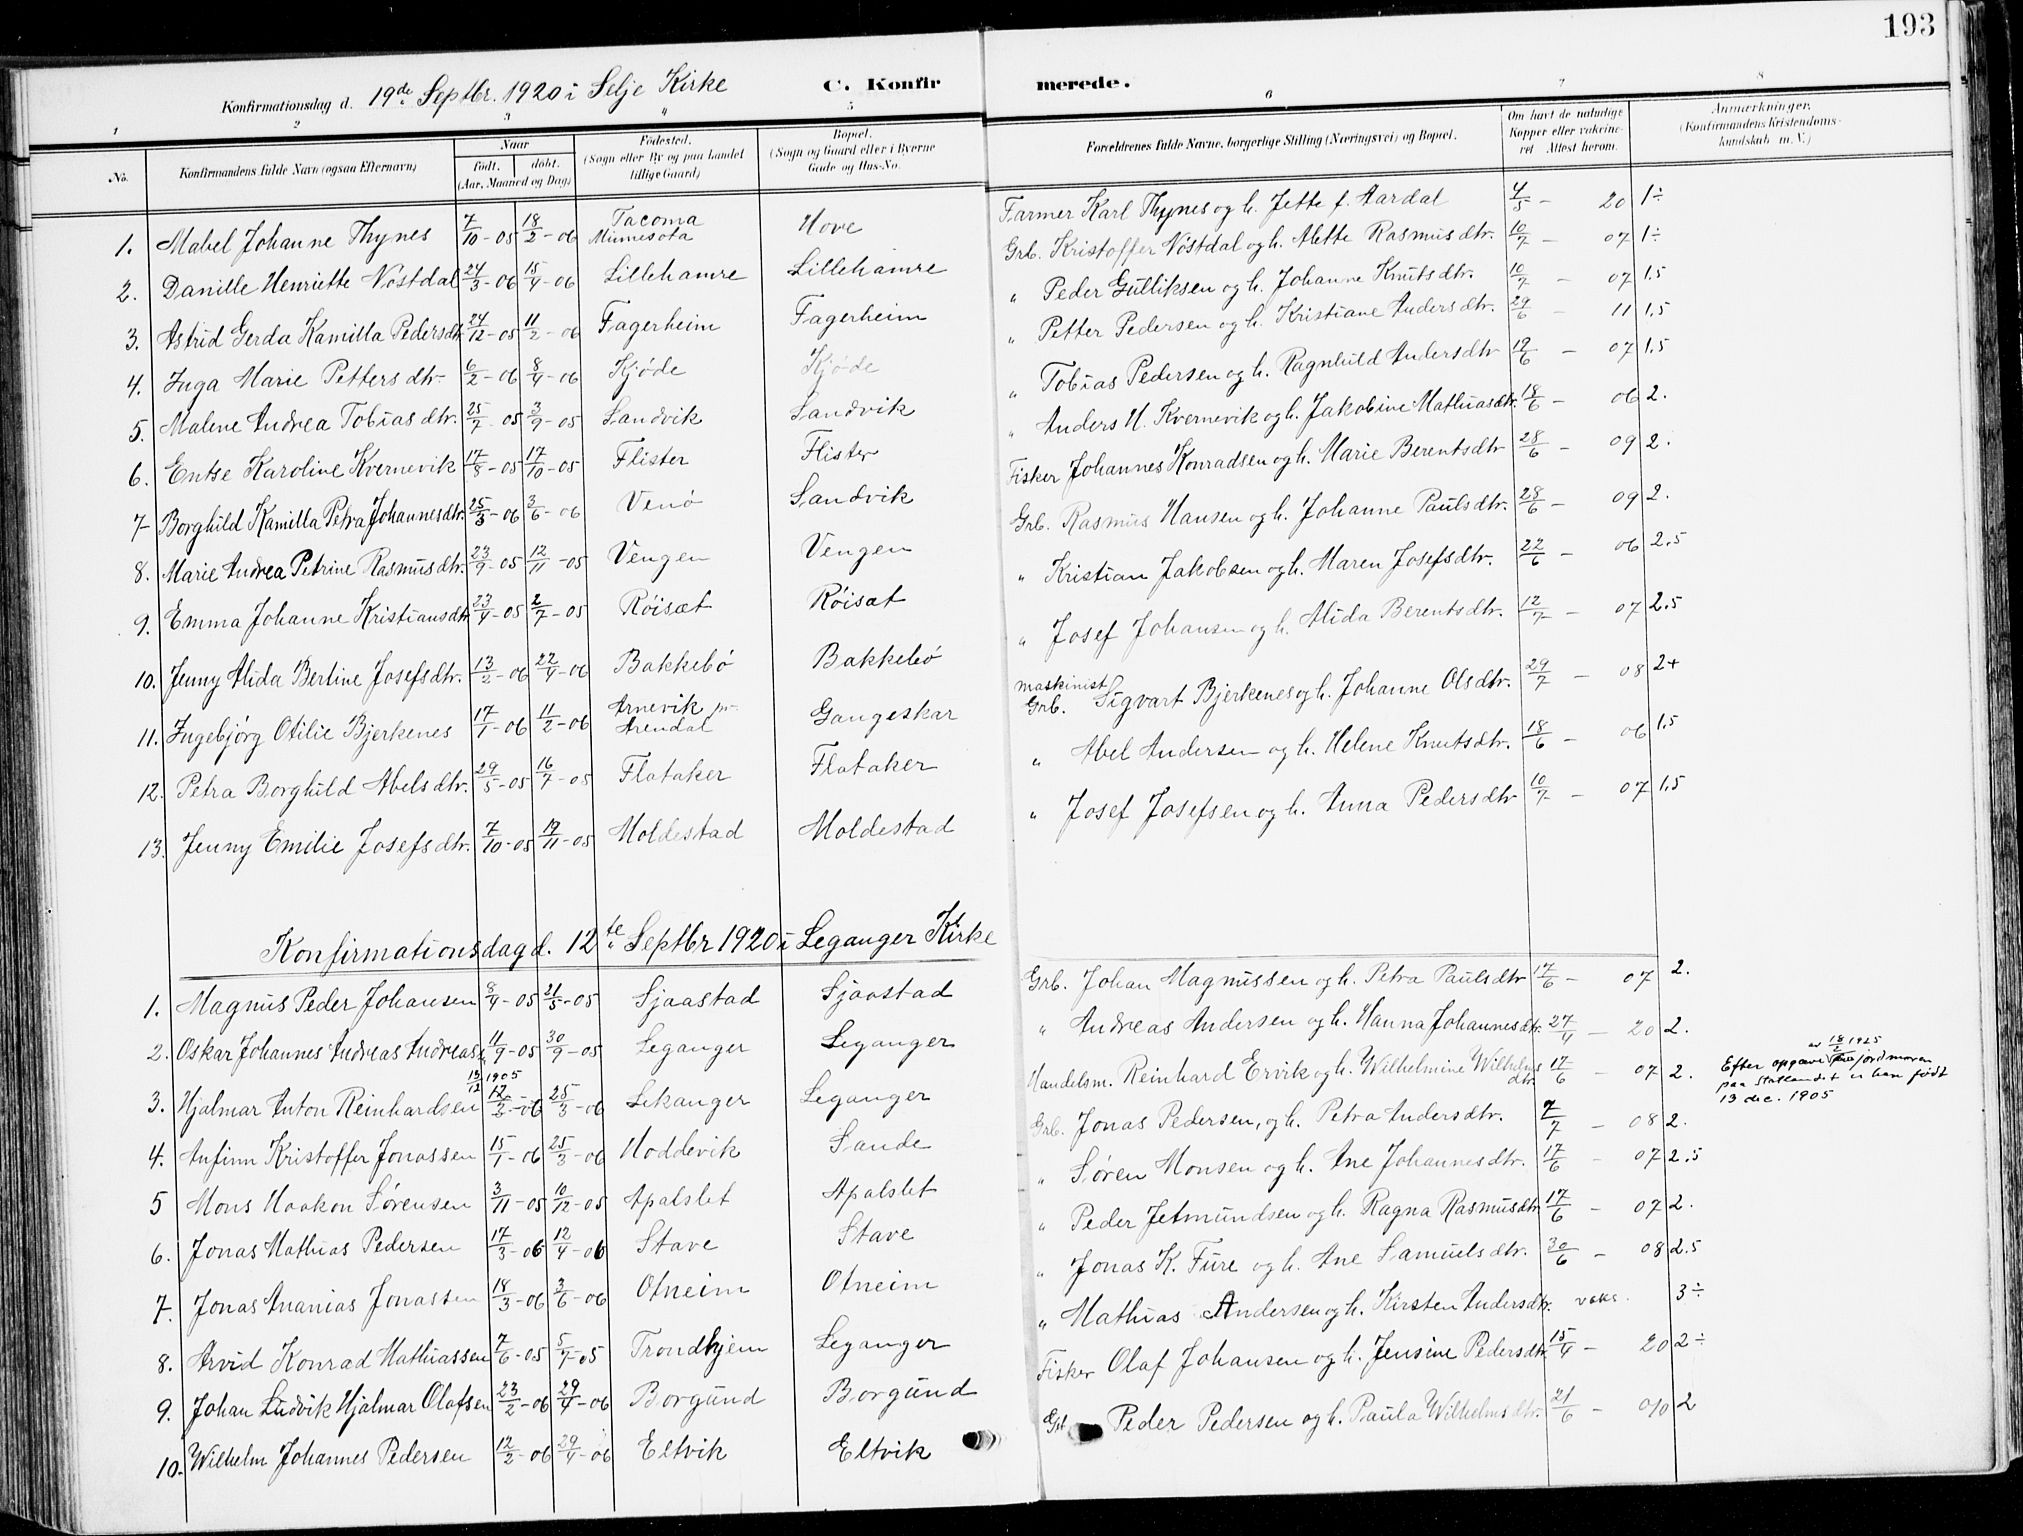 193
Konfirmationsdag d. 19de Septbr. 1920 i Selje Kirke
C. Konfirmerede.
1 2 3 4 5 6 7 8
No. Konfirmandens fulde Navn (ogsaa Efternavn) Naar født. døbt. (Aar, Maaned og Dag) Fødested. (Sogn eller By og paa Landet tillige Gaard) Bopæl. (Sogn og Gaard eller i Byerne Gade og Hus-No. Forældrenes fulde Navne, borgerlige Stilling (Næringsvei) og Bopæl. Om havt de naturlige Kopper eller vakcineret Attest herom. Anmærkninger. (Konfirmandens Kristendomskundskab m. V.)
1. Mabel Johanne Thynes 7/10-05 18/2-06 Tacoma Minnesota Hove Farmer Karl Thynes og h. Jette f. Aardal 4/5 - 20 1÷
2. Danille Henriette Nöstdal 24/3-06 15/4-06 Lillehamre Lillehamre Grb. Kristoffer Nöstdal og h. Alette Rasmusdtr. 10/7 - 07 1÷
3. Astrid Gerda Kamilla Pedersdtr. 24/12-05 11/2-06 Fagerheim Fagerheim " Peder Gulliksen og h. Johanne Knutsdtr. 10/7 - 07 1,5
4. Inga Marie Pettersdtr. 6/2-06 8/4-06 Kjøde Kjøde " Petter Pedersen og h. Kristiane Andersdtr. 29/6 - 11 1,5
5. Malene Andrea Tobiasdtr. 25/7-05 3/9-05 Sandvik Sandvik " Tobias Pedersen og h. Ragnhild Andersdtr 12/6 - 07 1,5
6. Entse Karoline Kvernevik 17/8-05 17/10-05 Flister Flister " Anders H. Kvernevik og h. Jakobine Mathiasdtr. 18/6 - 06 2.
7 Borghild Kamilla Petra Johannesdtr. 25/3-06 3/6-06 Venø Sandvik Fisker Johannes Konradsen og h. Marie Berentsdtr 28/6 - 09 2.
8. Marie Andrea Petrine Rasmusdtr. 23/9-05 12/11-05 Vengen Vengen Grb. Rasmus Hansen og h. Johanne Paulsdtr. 28/6 - 09 2.
9. Emma Johanne Kristiansdtr 23/4-05 2/7-05 Röisæt Röisæt " Kristian Jakobsen og h. Maren Josefsdtr. 22/6 - 06 2,5
10. Jenny Alida Bertine Josefsdtr. 13/2-06 22/4-06 Bakkebö Bakkebö " Josef Johansen og h. Alida Berentsdtr. 12/7 - 07 2,5
11. Ingebjörg Otilie Bjerkenes 17/1-06 11/2-06 Arnevik pr. Arendal Gangeskar maskinist Grb. Sigvart Bjerkenes og h. Johanne Olsdtr. 29/7 - 08 2+
12. Petra Borghild Abelsdtr. 29/5-05 16/7-05 Flataker Flataker " Abel Andersen og h. Helene Knutsdtr. 18/6 - 06 1,5
13. Jenny Emilie Josefsdtr. 7/10-05 19/11-05 Moldestad Moldestad " Josef Josefsen og h. Anna Pedersdtr 10/7 - 07 1,5
Konfirmationsdag d. 12te Septbr 1920 i Leganger Kirke
1. Magnus Peder Johansen 8/4-05 21/5-05 Sjaastad Sjaastad Grb. Johan Magnussen og h. Petra Paulsdtr 17/6 - 07 2.
2. Oskar Johannes Andreas Andreas. 11/9-05 30/9-05 Leganger Leganger " Andreas Andersen og h. Hanna Johannesdtr. 27/4 - 20 2.
3. Hjalmar Anton Reinhardsen 13/12 1905 12/3-06 25/3-06 Lekanger Leganger Handelsm. Reinhard Ervik og h. Wilhelmine Wilhelmsdtr. 17/6 - 07 2. Efter opgave av 18/2 1925 fra jordmoren
paa Statlandet er han født
13 dec. 1905
4. Anfinn Kristoffer Jonassen 15/1-06 25/3-06 Hoddevik Sande Grb. Jonas Pedersen, og h. Petra Andersdtr. 7/7 - 08 2.
5 Mons Haakon Sørensen 3/11-05 10/12-05 Apalslet Apalslet " Søren Monsen og h. Ane Johannesdtr. 17/6 - 07 2,5
6. Jonas Mathias Pedersen 17/3-06 12/4-06 Stave Stave " Peder Jetmundsen og h. Ragna Rasmusdtr. 17/6 - 07 2.
7. Jonas Ananias Jonassen 18/3-06 3/6-06 Otneim Otneim " Jonas K. Fure og h. Ane Samuelsdtr. 30/6 - 08 2.5
8. Arvid Konrad Mathiassen 7/6-05 5/7-05 Trondhjem Leganger " Mathias Andersen og h. Kirsten Andersdtr. vakc. 3÷
9. Johan Ludvik Hjalmar Olafsen 23/2-06 29/4-06 Borgund Borgund Fisker Olaf Johansen og h. Jensine Pedersdtr 15/4 - 20 2÷
10. Wilhelm Johannes Pedersen 12/2-06 29/4-06 Eltvik Eltvik Peder Pedersen og h. Paula Wilhelmsdtr. 21/6 - 2